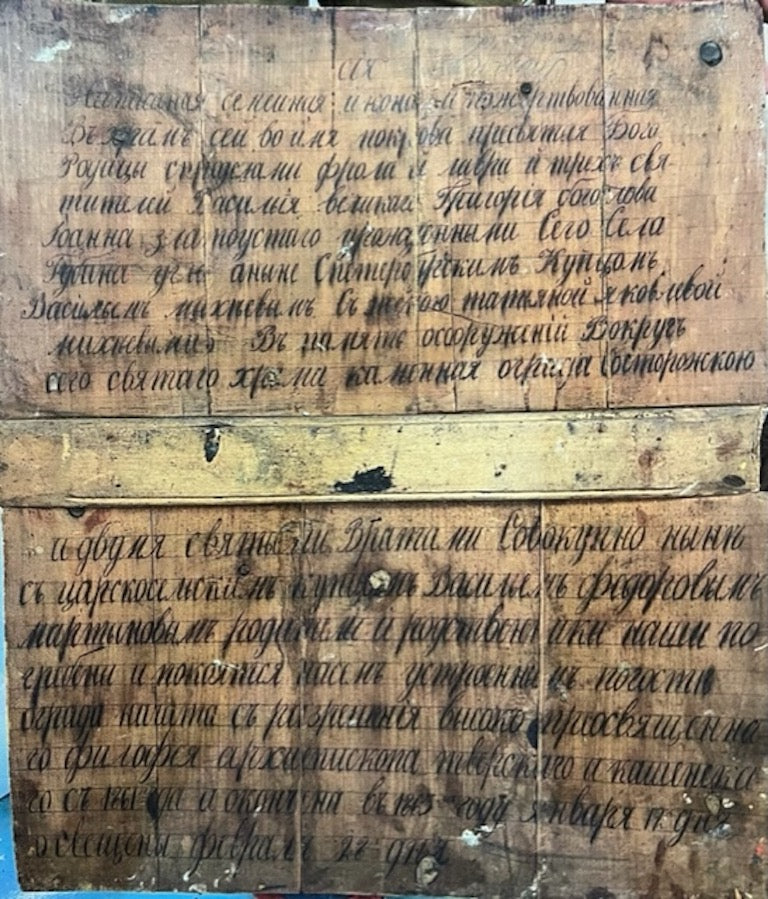 сія
Написаная семейная икона и пожертвованная
Въ храмъ сей во имя покрова присвятыя Бого
Родицы спридѣлами фрола и лавра и трехъ свя-
тителей Василія великаго Григорія богослова
Іоанна златоустаго урожденными Сего Села
аныне Спетербугскимъ Купцомъ
Васильемъ михѣевымъ Съ женою татьяной яковливой
михѣевыми Въ память осооруженій Вокругъ
сего святаго храма каменная ограда Состорожскою
и двумя святыми Вратами Совокупно нынѣ
съ царскосельскимъ купцомъ Васильемъ федоровымъ
мартыновымъ родители и родственники наши по
гребены и покоятся насемъ устроенномъ погостѣ
ограда начата съ разрешенія высоко преосвященна
го филофея архіепископа тверскаго и кашинска
го съ и окончена въ году января дня
освещены февраля 22 дня